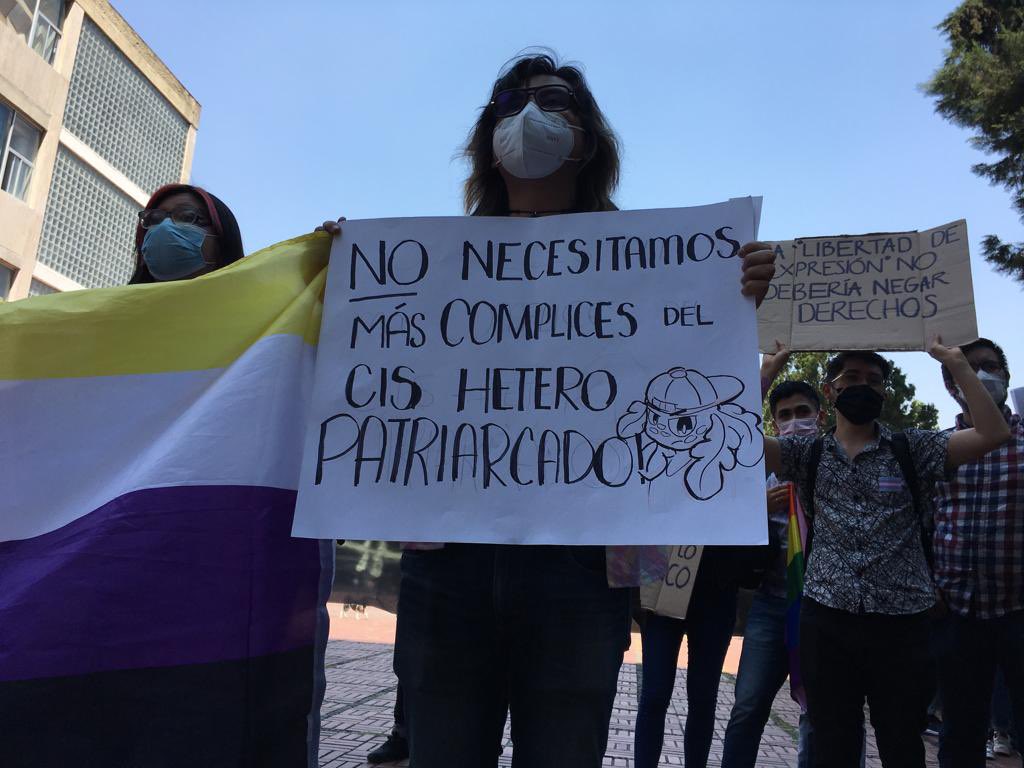 NO NECESITAMOS
MÁS COMPLICES DEL
CIS HETERO
PATRIARCADO!
A "LIBERTAD DE
XPRESIÓN" NO
DEBERÍA NEGAR
DERECHOS
LO
CO